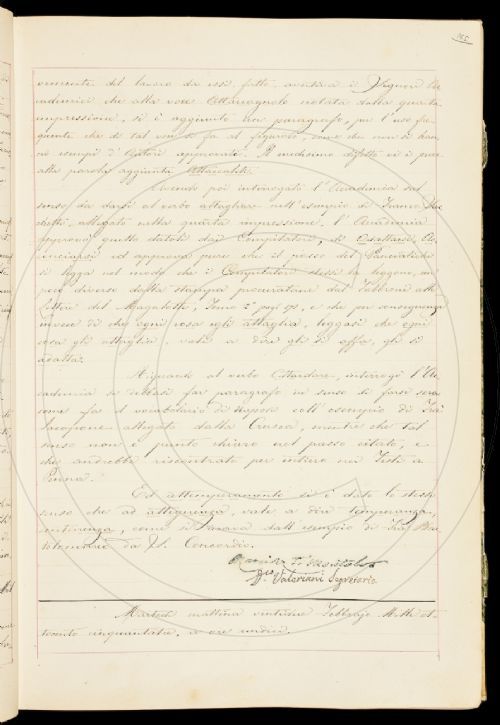 165
veniente del lavoro da essi fatto, avverte i Signori Ac
cademici che alla voce Attaccagnolo notata dalla quarta
impressione, si è aggiunto un paragrafo, per l'uso fre-
quente che di tal voce si fa al figurato, come che non si han-
no esempi d'Autori approvati. Il medesimo difetto vi è pure
alla parola aggiunta Attaccaliti.
Avendo poi interrogati l'Accademia sul
senso da darsi al verbo attagliare nell'esempio di Franco Sac
chetti, allegato nella quarta impressione, l'Accademia
approvò quello datoli dai Compilatori, di Confarsi, Ac
conciarsi ed approvò pure che il passo del Panciatichi
si legga nel modo che i Compilatori stessi lo leggono, un
poco diverso dalla stampa procurata dal Fabbroni alle
Lettere del Magalotti, Tomo 2° pag. 173, e che per conseguenza
invece di che ogni cosa egli attaglia, leggasi che ogni
cosa gli attaglia, vale a dire gli si affà, gli si
adatta.
Riguardo al verbo Attardare, interrogò l'Ac-
cademia se debbasi far paragrafo in senso di farsi sera
come fa il vocabolario di Napoli coll'esempio di Fra
Jacopone allegato dalla Crusca, mentre che tal
senso non è punto chiaro nel passo citato, e
che andrebbe riscontrato per intiero nei Testi a
Penna.
Ed attemperamento si è dato lo stesso
senso che ad attiperanza, vale a dire temperanza,
continenza, come si cavava dall'esempio di Fra Bar
tolommeo da S. Concordio.
Dre Valeriani Segretario
Martedì mattina ventidue Febbrajo Mille ot-
tocento cinquantatre, a ore undici.